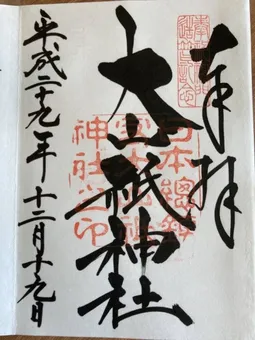 奉拝
日本總鎮
大山祇神社
神社之印
平成二十九年十二月十九日